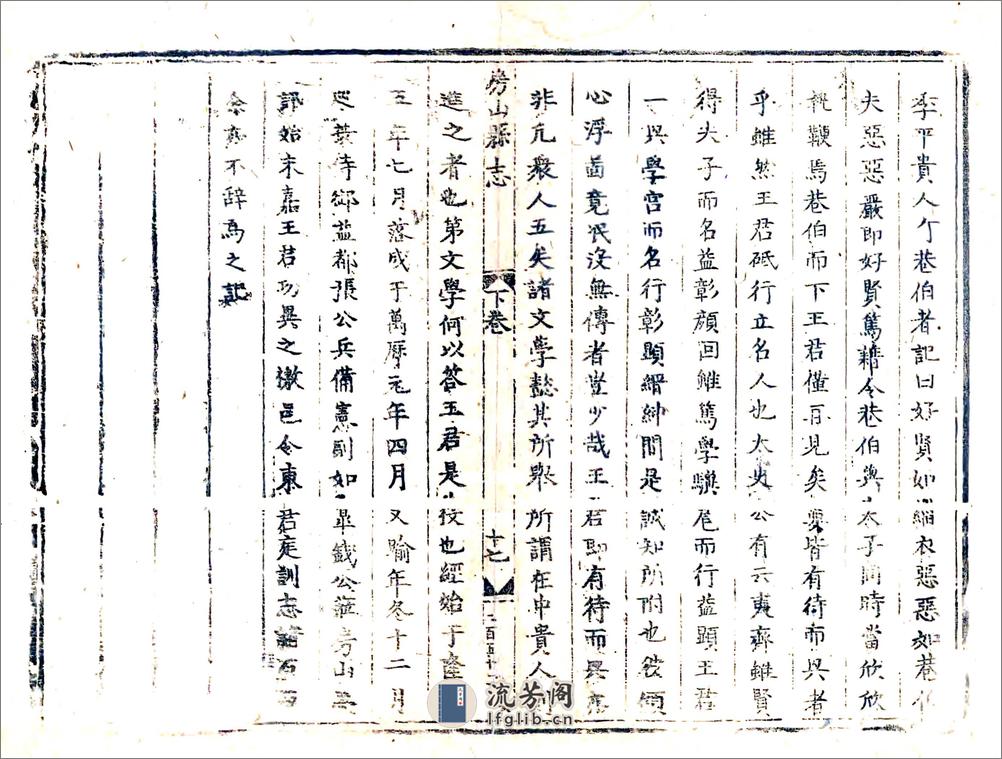 季平貴人今巷伯者記曰好賢如緇衣惡惡如巷伯
夫惡惡嚴即好賢篤藉令巷伯與太子同時當欣欣
執鞭焉巷伯而下王君僅再見矣要皆有待而興者
乎雖然王君砥行立名人也太史公有云夷齊雖賢
得夫子而名益彰顏回雖篤學驥尾而行益顯王君
一與學宮而名行彰顯縉紳間是誠知所附也彼
心浮啚竟泯沒無傳者豈少哉王君即有待而興
非凡衆人五矣諸文學懿其所舉所謂在中貴人
房山縣志
下巻
十七
進之者也第文學何以答王君是役也經始于隆
五年七月落成于萬曆元年四月又踰年冬十二月
葉侍御益都張公兵備憲副如皋錢公蒞房山
詢始末嘉王君功異之檄邑令東君庭訓志諸石
余 不辭為之記
流芳阁
lfglib.cn